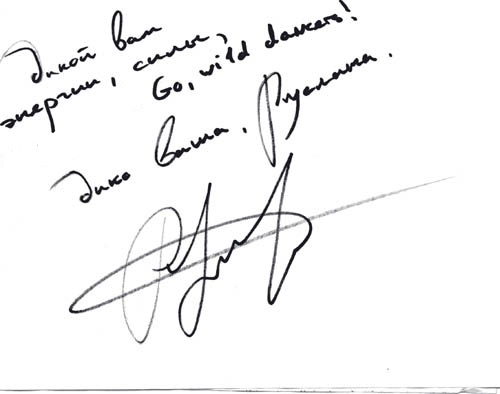 Дикой вам
энергии, силы,
Go, wild dancers!
Дико Ваша, Руслана.